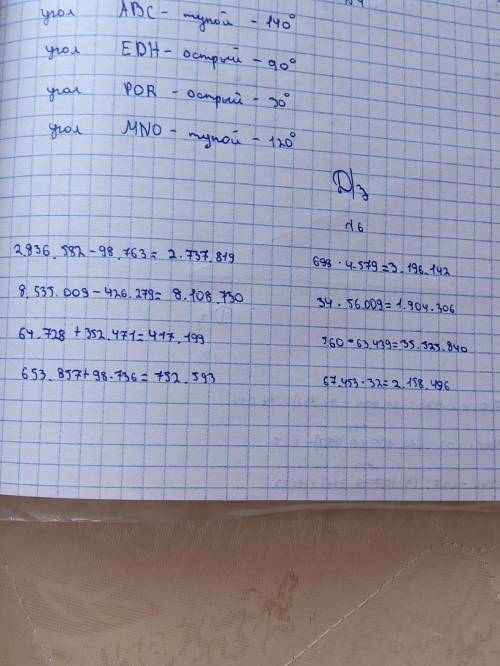 угол ABC - тупой - 140°
угол EDH - острый - 90°
угол POR - острый - 30°
угол MNO - тупой - 120°
Д/з
№6
2.836.582 - 98.763 = 2.737.819
8.535.009 - 426.279 = 8.108.730
64.728 + 352.471 = 417.199
653.857 + 98.736 = 752.593
698 · 4.579 = 3.196.142
34 · 56.009 = 1.904.306
560 · 63.439 = 35.525.840
67.453 · 32 = 2.158.496